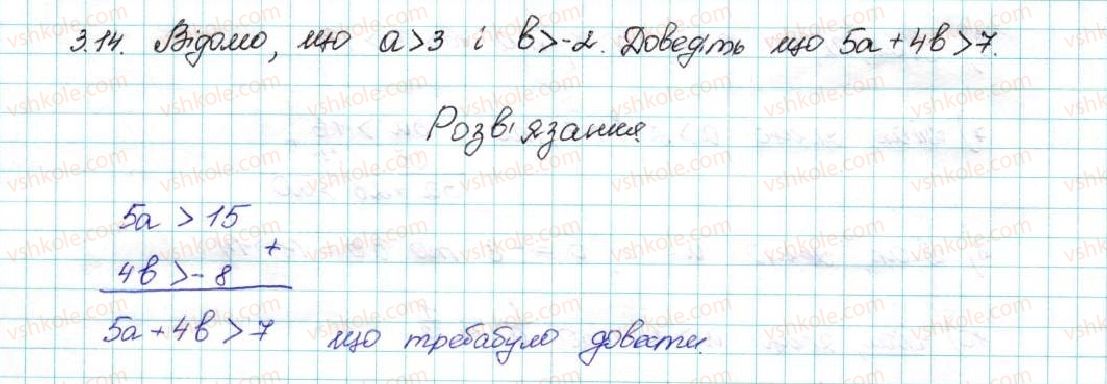 3.14. Відомо, що a>3 і b>-2. Доведіть що 5a+4b>7.
Розв'язання
5a > 15
+
4b > -8
5a+4b>7 що требабуло довести.